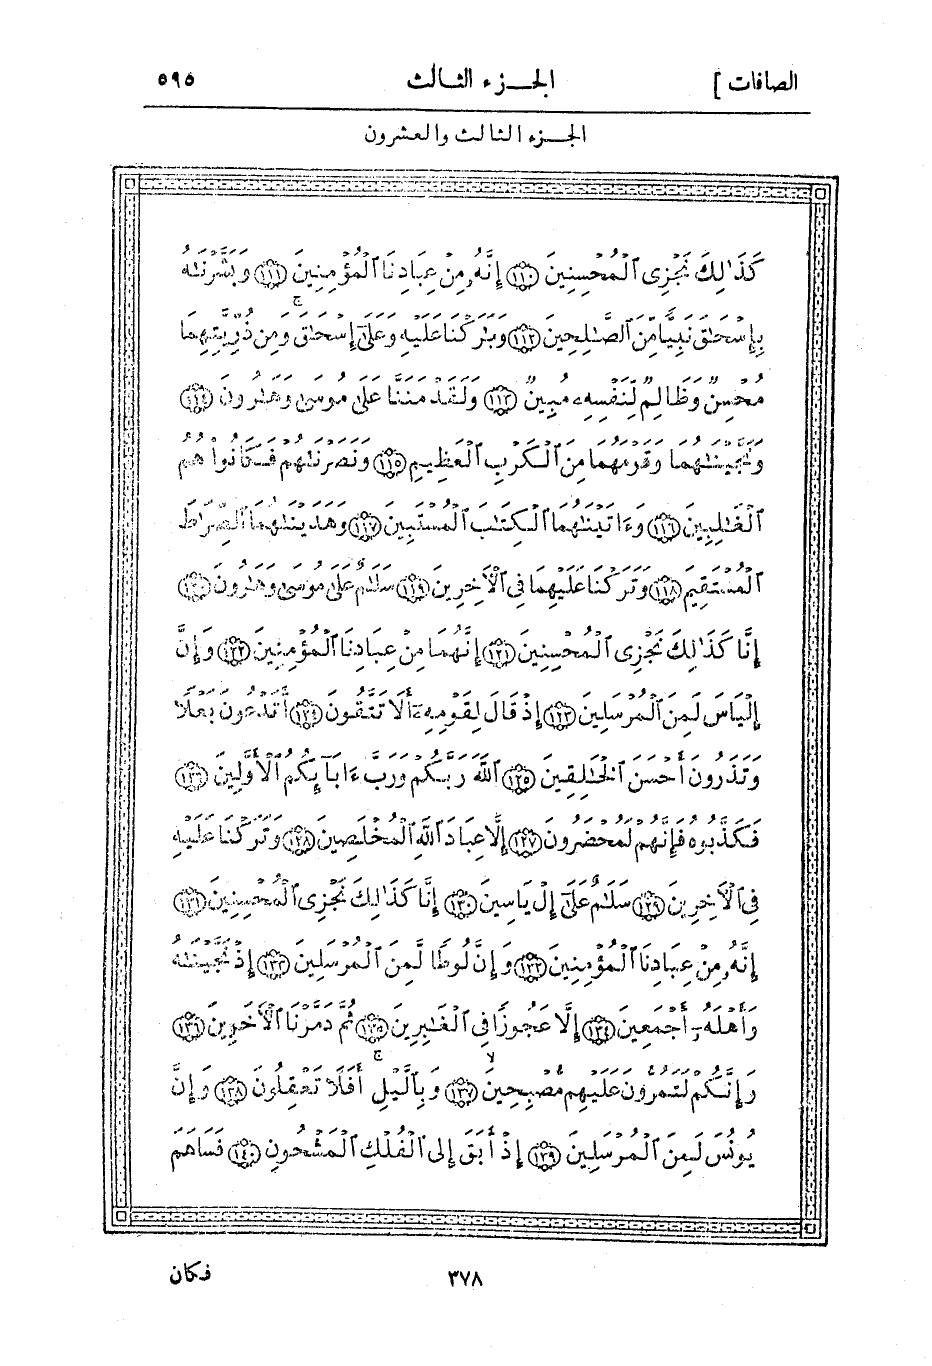 الصافات ] الجـــزء الثـالث ٥٩٥
الجـــزء الثالث والعشرون
كَذَٰلِكَ نَجْزِى ٱلْمُحْسِنِينَ ﴿١١٠﴾ إِنَّهُۥ مِنْ عِبَادِنَا ٱلْمُؤْمِنِينَ ﴿١١١﴾ وَبَشَّرْنَٰهُ
بِإِسْحَٰقَ نَبِيًّا مِّنَ ٱلصَّٰلِحِينَ ﴿١١٢﴾ وَبَٰرَكْنَا عَلَيْهِ وَعَلَىٰٓ إِسْحَٰقَ ۚ وَمِن ذُرِّيَّتِهِمَا
مُحْسِنٌ وَظَالِمٌ لِّنَفْسِهِۦ مُبِينٌ ﴿١١٣﴾ وَلَقَدْ مَنَنَّا عَلَىٰ مُوسَىٰ وَهَٰرُونَ ﴿١١٤﴾
وَنَجَّيْنَٰهُمَا وَقَوْمَهُمَا مِنَ ٱلْكَرْبِ ٱلْعَظِيمِ ﴿١١٥﴾ وَنَصَرْنَٰهُمْ فَكَانُوا۟ هُمُ
ٱلْغَٰلِبِينَ ﴿١١٦﴾ وَءَاتَيْنَٰهُمَا ٱلْكِتَٰبَ ٱلْمُسْتَبِينَ ﴿١١٧﴾ وَهَدَيْنَٰهُمَا ٱلصِّرَٰطَ
ٱلْمُسْتَقِيمَ ﴿١١٨﴾ وَتَرَكْنَا عَلَيْهِمَا فِى ٱلْأَخِرِينَ ﴿١١٩﴾ سَلَٰمٌ عَلَىٰ مُوسَىٰ وَهَٰرُونَ ﴿١٢٠﴾
إِنَّا كَذَٰلِكَ نَجْزِى ٱلْمُحْسِنِينَ ﴿١٢١﴾ إِنَّهُمَا مِنْ عِبَادِنَا ٱلْمُؤْمِنِينَ ﴿١٢٢﴾ وَإِنَّ
إِلْيَاسَ لَمِنَ ٱلْمُرْسَلِينَ ﴿١٢٣﴾ إِذْ قَالَ لِقَوْمِهِۦٓ أَلَا تَتَّقُونَ ﴿١٢٤﴾ أَتَدْعُونَ بَعْلًا
وَتَذَرُونَ أَحْسَنَ ٱلْخَٰلِقِينَ ﴿١٢٥﴾ ٱللَّهَ رَبَّكُمْ وَرَبَّ ءَابَآئِكُمُ ٱلْأَوَّلِينَ ﴿١٢٦﴾
فَكَذَّبُوهُ فَإِنَّهُمْ لَمُحْضَرُونَ ﴿١٢٧﴾ إِلَّا عِبَادَ ٱللَّهِ ٱلْمُخْلَصِينَ ﴿١٢٨﴾ وَتَرَكْنَا عَلَيْهِ
فِى ٱلْأَخِرِينَ ﴿١٢٩﴾ سَلَٰمٌ عَلَىٰٓ إِلْ يَاسِينَ ﴿١٣٠﴾ إِنَّا كَذَٰلِكَ نَجْزِى ٱلْمُحْسِنِينَ ﴿١٣١﴾
إِنَّهُۥ مِنْ عِبَادِنَا ٱلْمُؤْمِنِينَ ﴿١٣٢﴾ وَإِنَّ لُوطًا لَّمِنَ ٱلْمُرْسَلِينَ ﴿١٣٣﴾ إِذْ نَجَّيْنَٰهُ
وَأَهْلَهُۥٓ أَجْمَعِينَ ﴿١٣٤﴾ إِلَّا عَجُوزًا فِى ٱلْغَٰبِرِينَ ﴿١٣٥﴾ ثُمَّ دَمَّرْنَا ٱلْأَخَرِينَ ﴿١٣٦﴾
وَإِنَّكُمْ لَتَمُرُّونَ عَلَيْهِم مُّصْبِحِينَ ﴿١٣٧﴾ وَبِٱلَّيْلِ ۚ أَفَلَا تَعْقِلُونَ ﴿١٣٨﴾ وَإِنَّ
يُونُسَ لَمِنَ ٱلْمُرْسَلِينَ ﴿١٣٩﴾ إِذْ أَبَقَ إِلَى ٱلْفُلْكِ ٱلْمَشْحُونِ ﴿١٤٠﴾ فَسَاهَمَ
٣٧٨ فكان